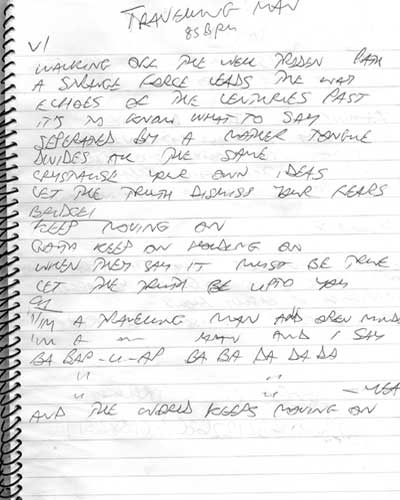 TRAVELLING MAN
85 BPM
V1
WALKING OFF THE WELL TRODEN PATH
A STRANGE FORCE LEADS THE WAY
ECHOES OF THE CENTURIES PAST
IT'S TO KNOW WHAT TO SAY
SEPERATED BY A MOTHER TONGUE
DIVIDES ALL THE SAME
CRYSTALISE YOUR OWN IDEAS
LET THE TRUTH DISMISS YOUR FEARS
BRIDGE 1
KEEP MOVING ON
GOTTA KEEP ON HOLDING ON
WHEN THEY SAY IT MUST BE TRUE
LET THE TRUTH BE UPTO YOU
I'M A TRAVELLING MAN AND OPEN MIND
I'M A — MAN AND I SAY
BA BAP-U-AP BA BA DA DA DA
" "
" " - YEA
AND THE WORLD KEEPS MOVING ON